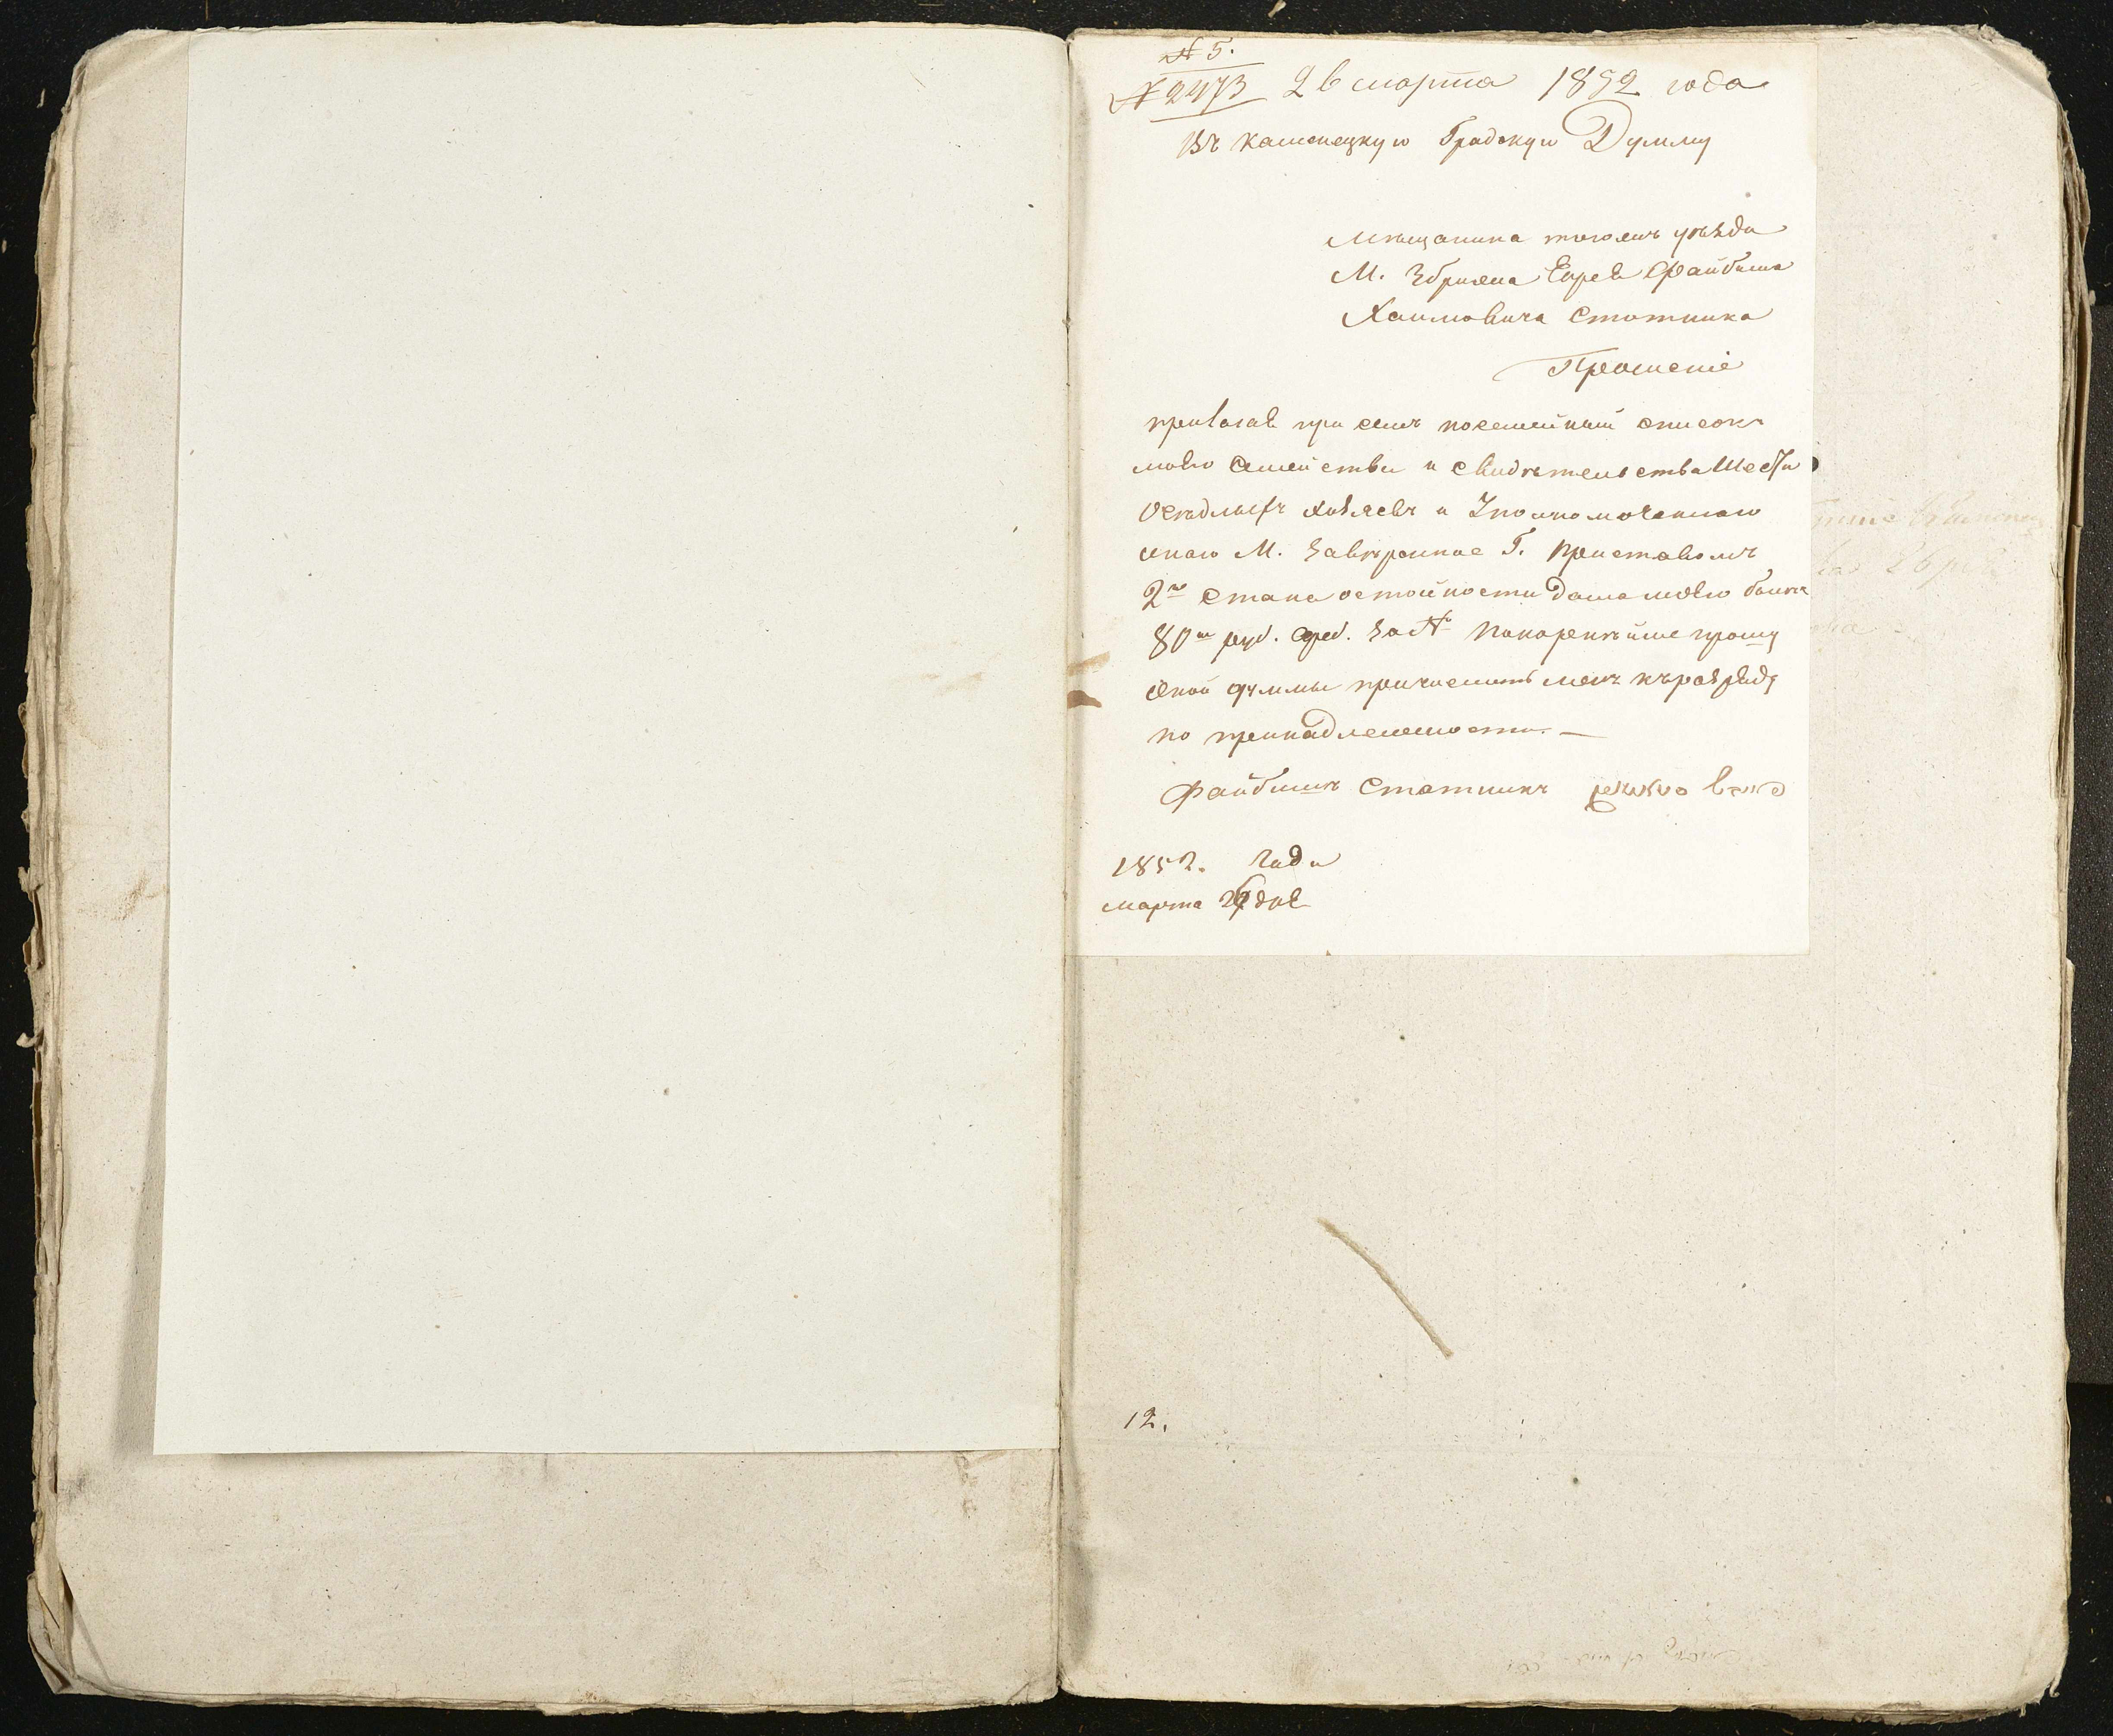 № 5.
№ 2473 26 марта 1852 года
Въ каменецкую Градскую Думму
Мѣщанина тогожъ уѣзда
М. Збрижа Еврея Файбиша
Хаимовича Статника
Прошеніе
прилагая при семъ посемейный списокъ
моего семейства и свидѣтельства Шести
осѣдлыхъ хозяевъ и Уполномоченнаго
онаго М. завѣренное Г. приставомъ
2го стана о стоймости дома моего болѣе
80ти руб. сер. за № покорнѣйше прошу
оной думмы причислить мѣнѣ къ разряду
по принадлежности. —
Файбишъ Статникъ
1852. Года
марта 26 дня
12.